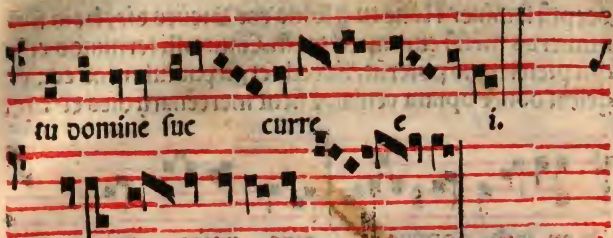 tu domine suc curre e i.